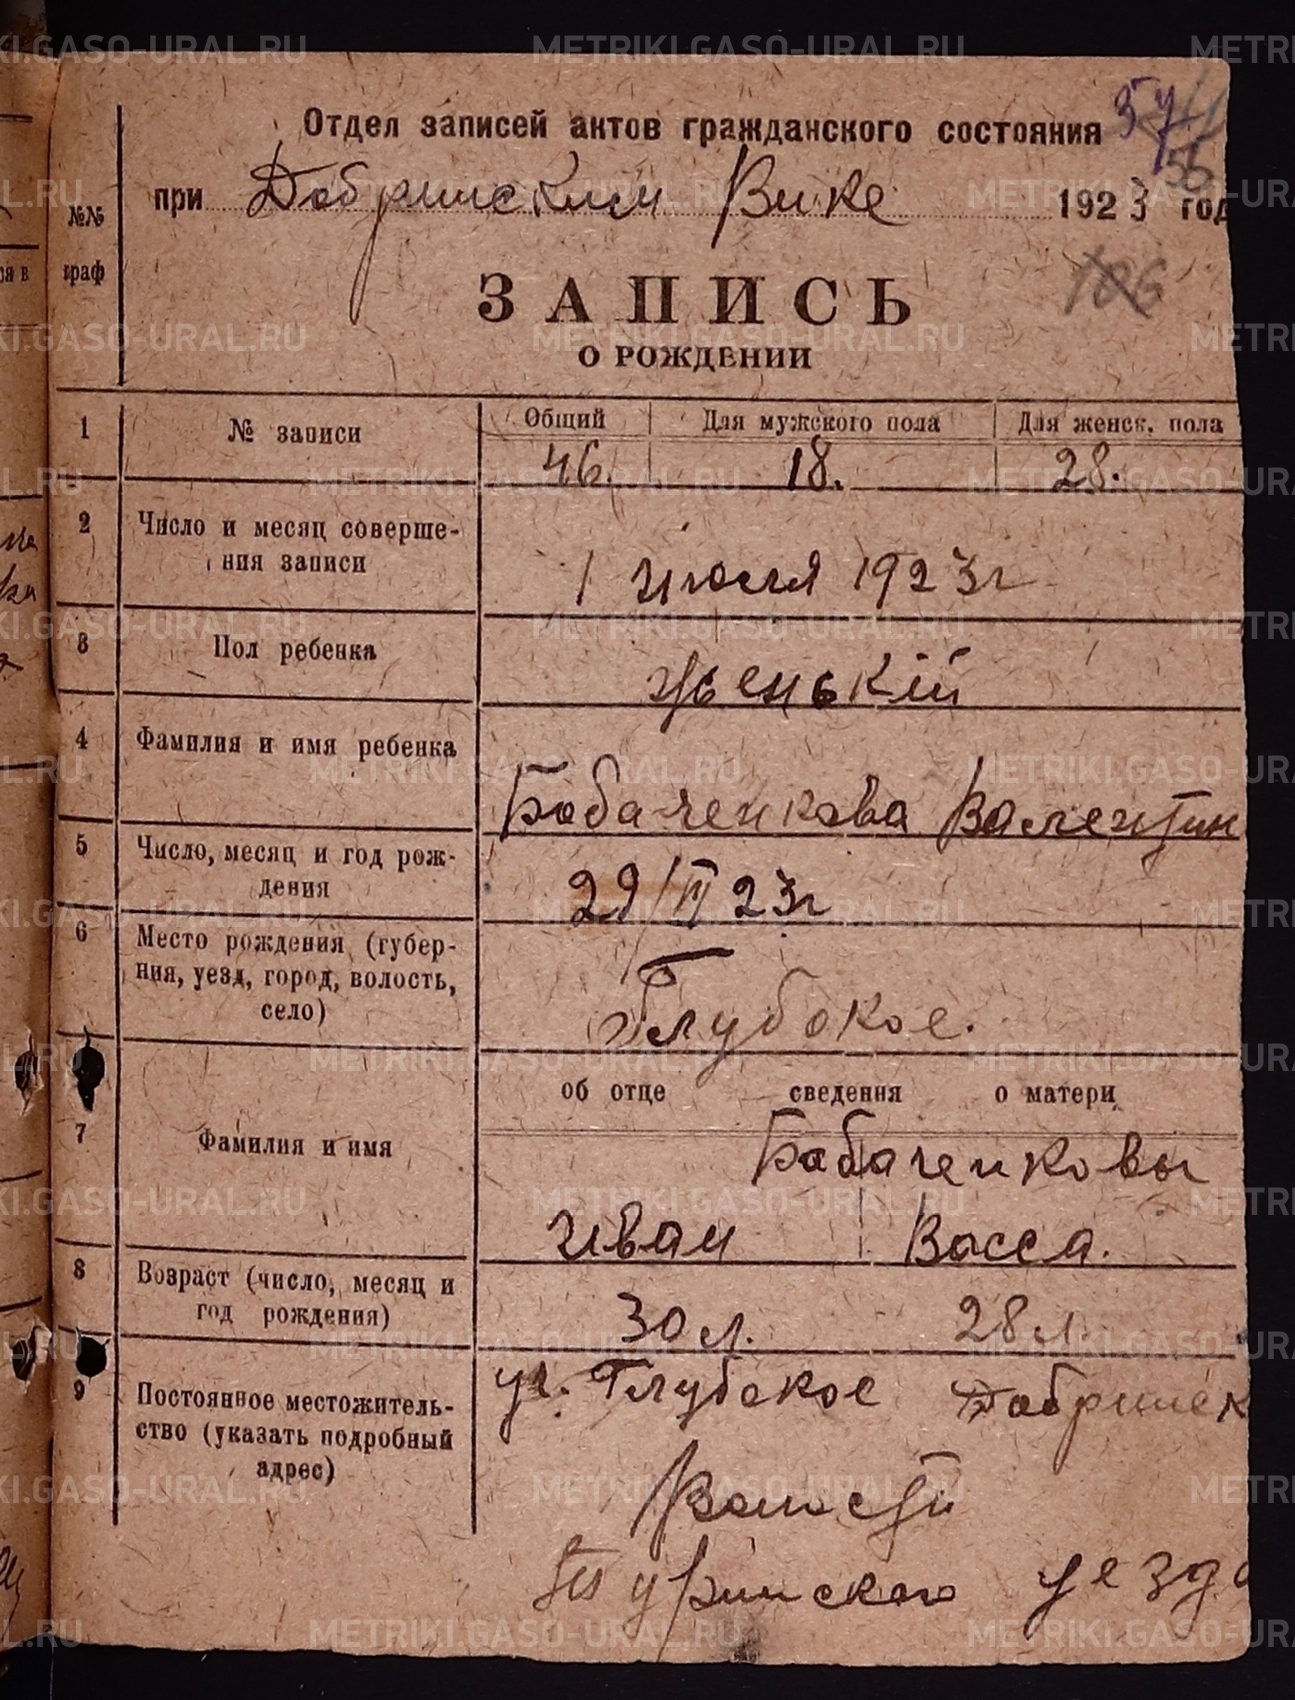 Отдел записей актов гражданского состояния
при Добринским Вике 1923 год
№№ граф
ЗАПИСЬ
О РОЖДЕНИИ
1 № записи Общий Для мужского пола Для женск. пола
46. 18. 28.
2 Число и месяц соверше-
ния записи
1 июля 1923г
3 Пол ребенка
женький
4 Фамилия и имя ребенка
Бабаченкова Валентин
5 Число, месяц и год рож-
дения
29/VI 23г
6 Место рождения (губер-
ния, уезд, город, волость,
село)
Глубокое.
об отце сведения о матери
7 Фамилия и имя
Бабаченковы
Иван Васса.
8 Возраст (число, месяц и
год рождения)
30 л. 28 л.
9 Постоянное местожитель-
ство (указать подробный
адрес)
Глубокое Добринск
Волости
Туринского уезда